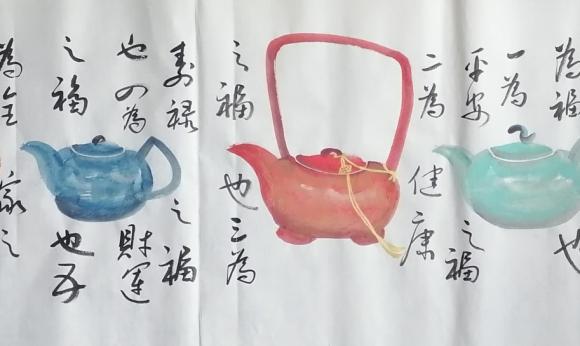 為福也
一為
平安之福
二為健康
之福也三為
壽禄之福
也四為財運
之福也五
為全家之